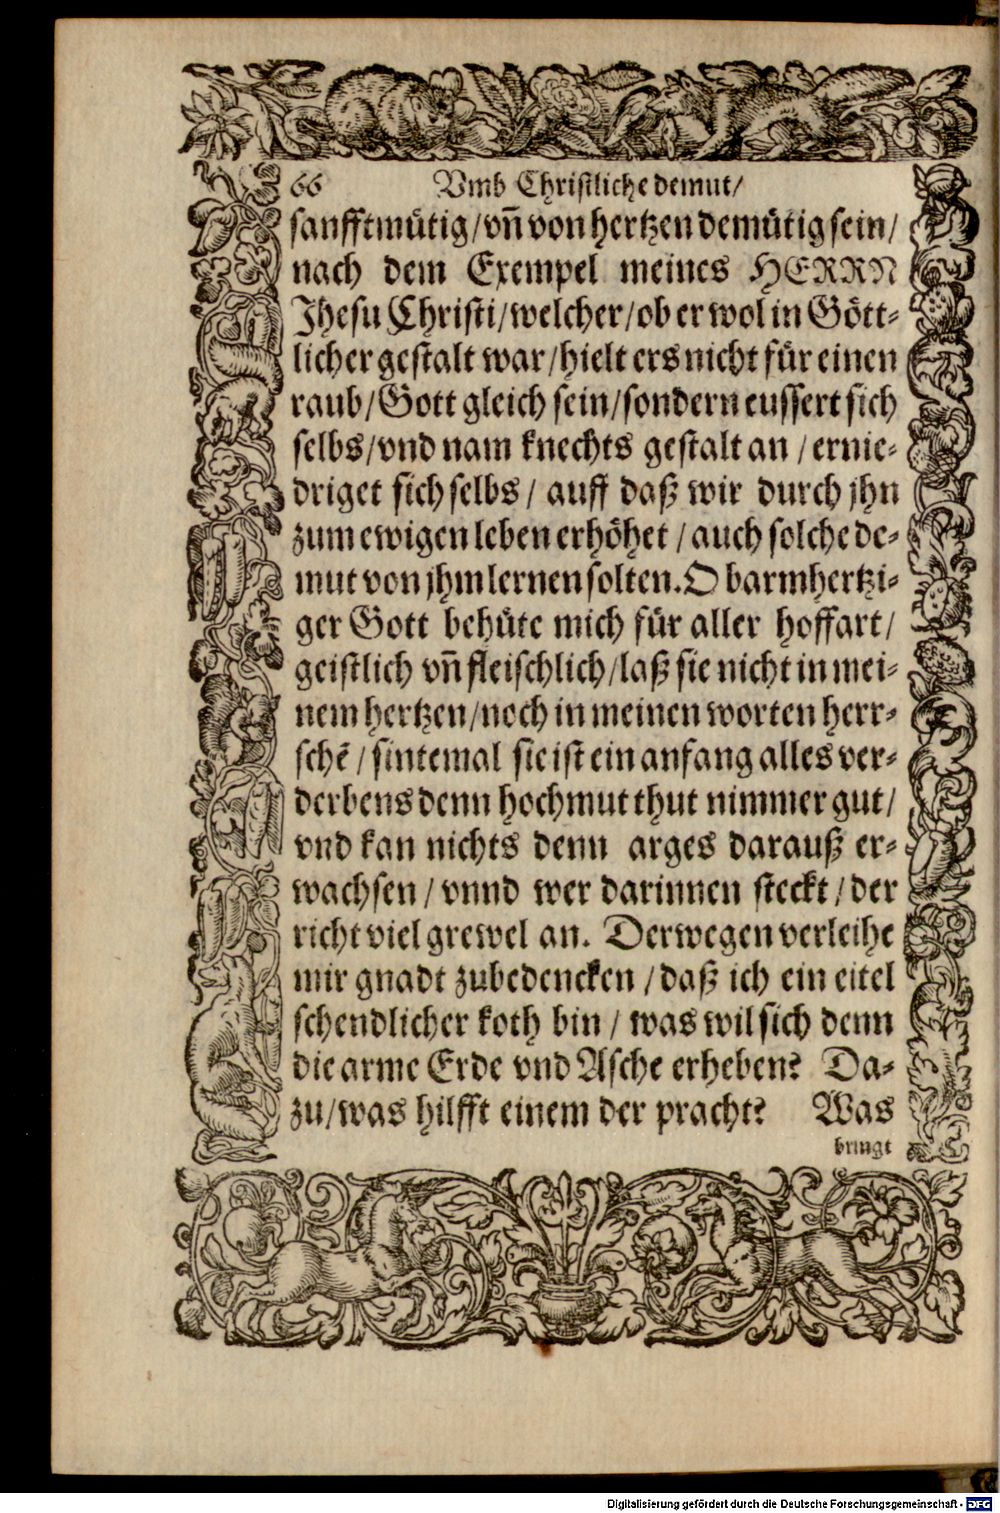 66 Vmb Christliche demut/
sanfftmütig/vñ von hertzen demütig sein/
nach dem Exempel meines HERRN
Jhesu Christi/welcher/ob er wol in Gött-
licher gestalt war/hielt ers nicht für einen
raub/Gott gleich sein/sondern eussert sich
selbs/vnd nam knechts gestalt an / ernie-
driget sich selbs / auff daß wir durch jhn
zum ewigen leben erhöhet / auch solche de-
mut von jhm lernen solten. O barmhertzi-
ger Gott behüte mich für aller hoffart/
geistlich vñ fleischlich/laß sie nicht in mei-
nem hertzen/noch in meinen worten herr-
schẽ / sintemal sie ist ein anfang alles ver-
derbens denn hochmut thut nimmer gut/
vnd kan nichts denn arges darauß er-
wachsen / vnnd wer darinnen steckt / der
richt viel grewel an. Derwegen verleihe
mir gnadt zubedencken / daß ich ein eitel
schendlicher koth bin / was wil sich denn
die arme Erde vnd Asche erheben? Da-
zu/was hilfft einem der pracht? Was
bringt
Digitalisierung gefördert durch die Deutsche Forschungsgemeinschaft - DFG